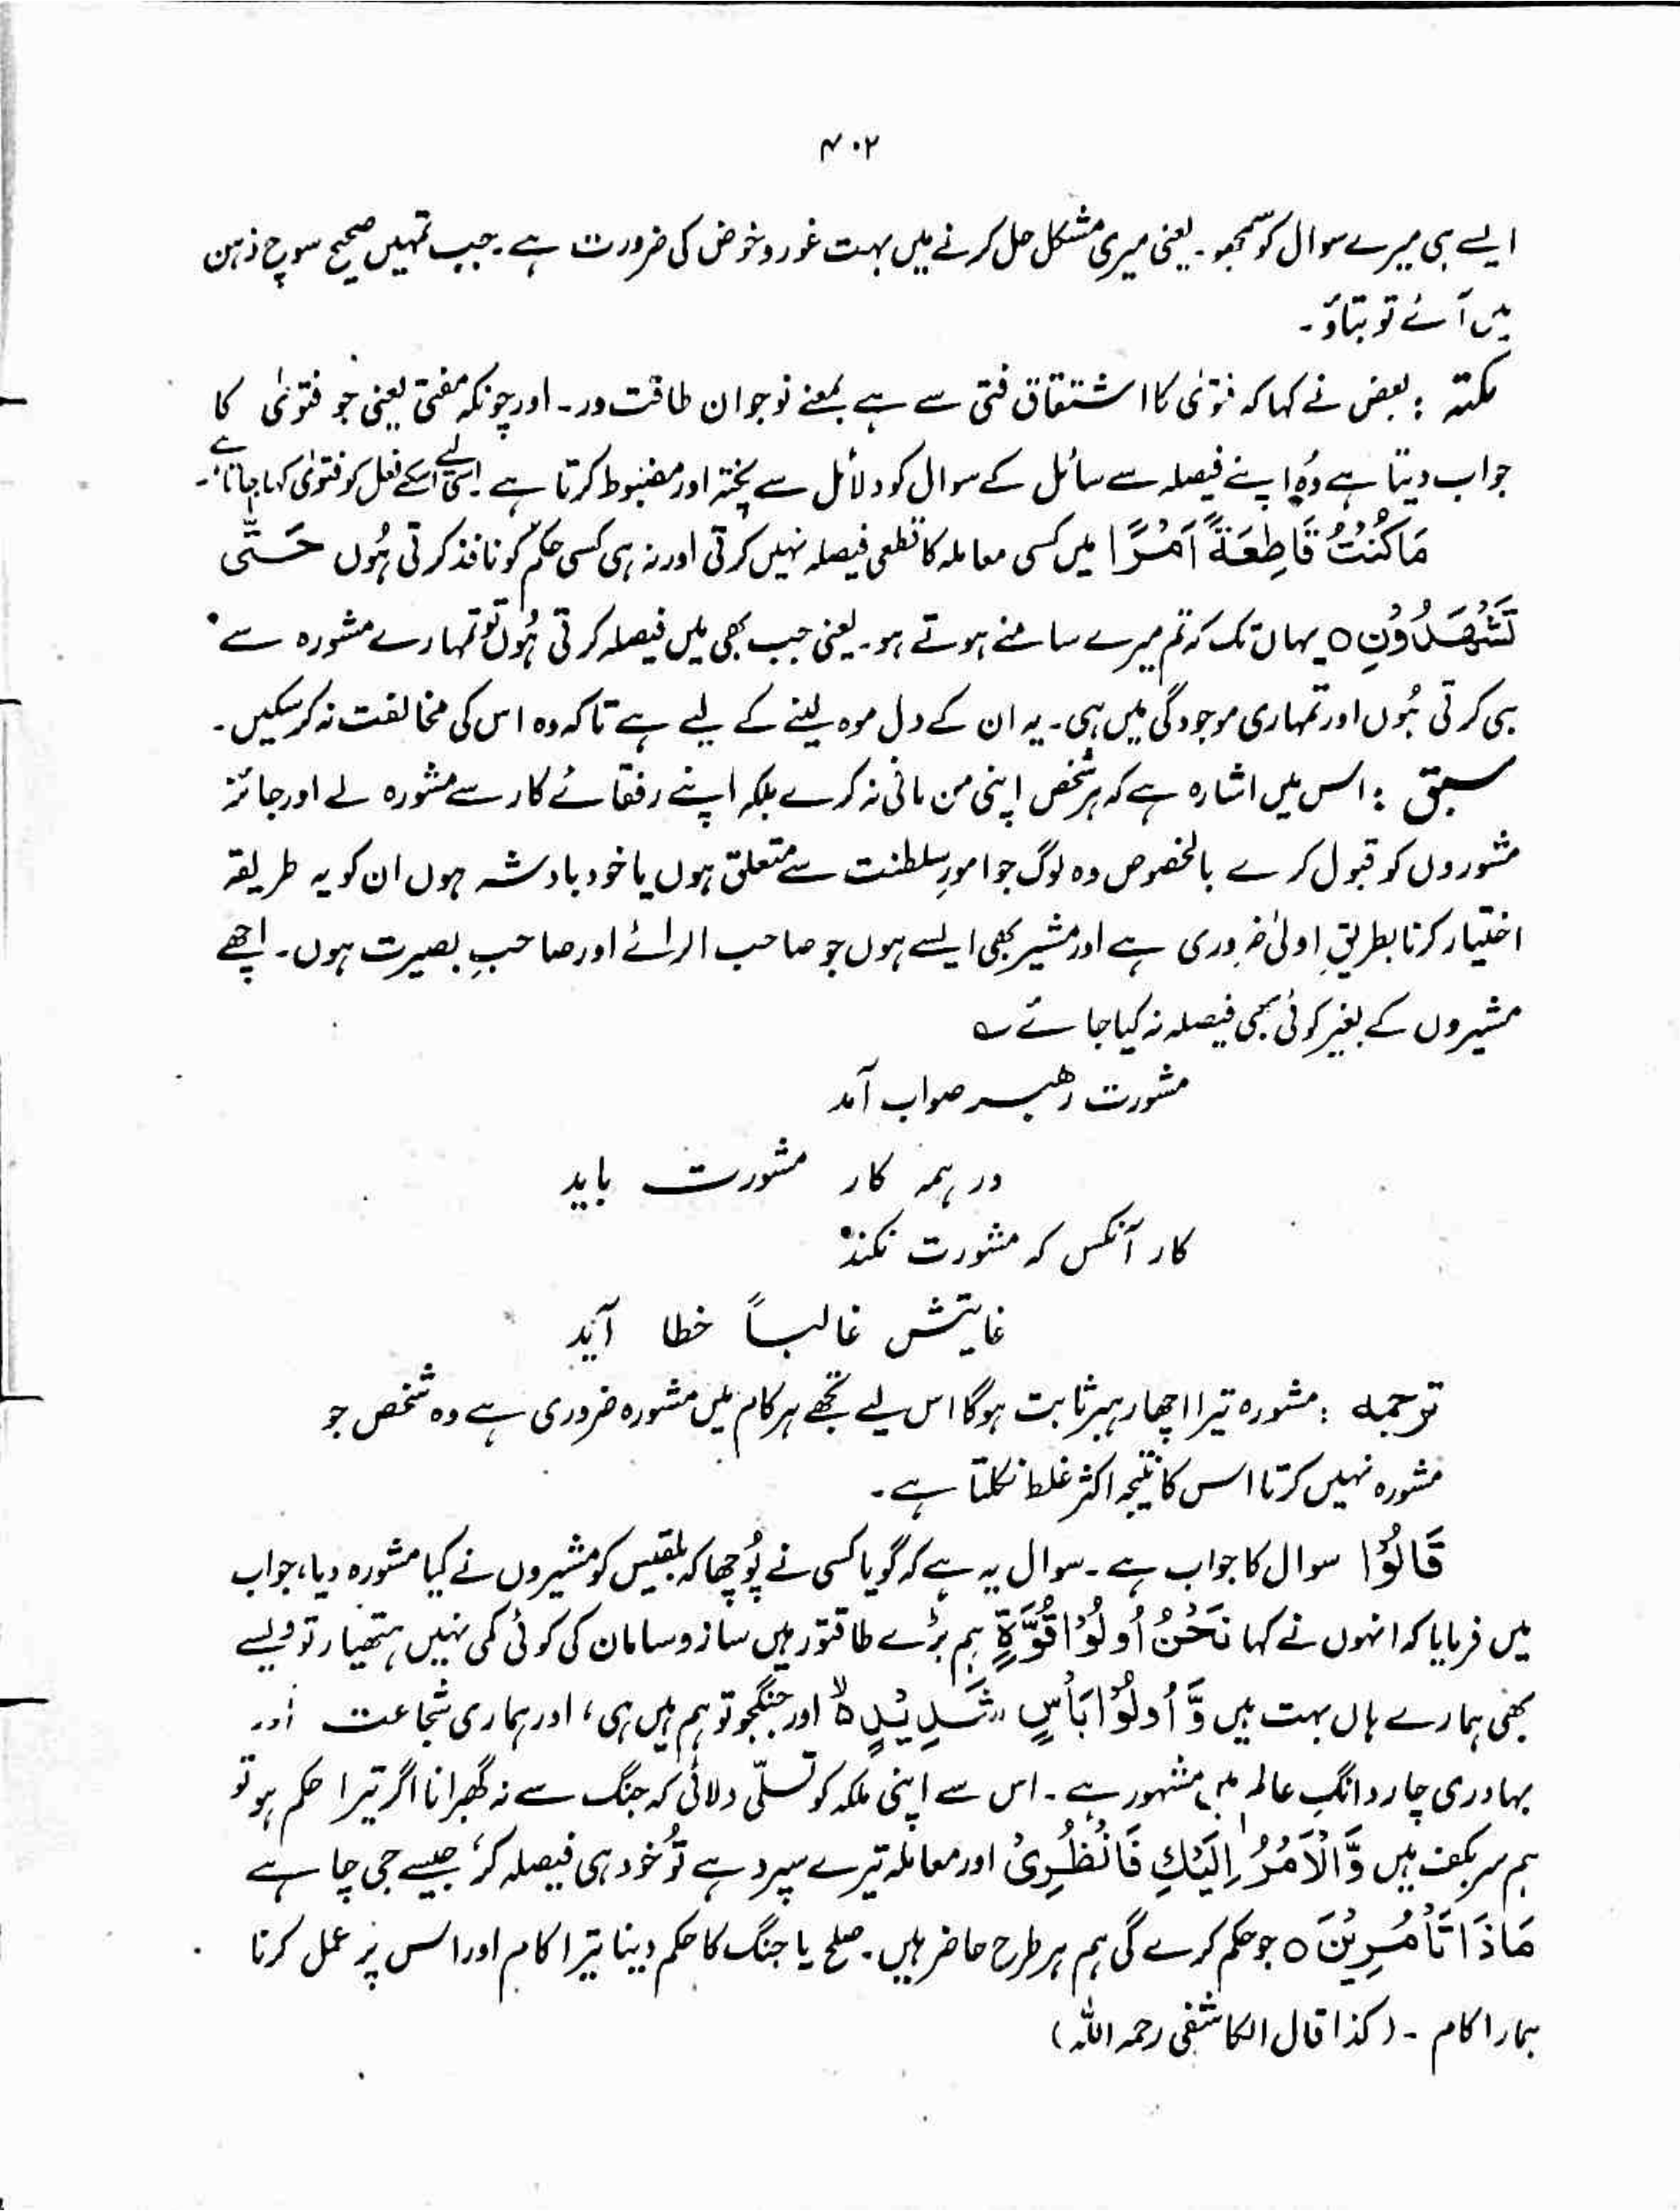 ۴۰۲
ایسے ہی میرے سوال کو سمجھو۔ یعنی میری مشکل حل کرنے میں بہت غور و خوض کی ضرورت ہے۔ جب تمہیں صحیح سوچ ذہن
میں آئے تو بتاؤ۔
نکتہ : بعض نے کہا کہ فتویٰ کا اشتقاق فتی سے ہے بمعنے نوجوان طاقت ور۔ اور چونکہ مفتی یعنی جو فتویٰ کا
جواب دیتا ہے وُہ اپنے فیصلہ سے سائل کے سوال کو دلائل سے پختہ اور مضبوط کرتا ہے اسی لیے اسکے فعل کو فتویٰ کہا جاتا ہے۔
مَا كُنْتُ قَاطِعَةً اَمْرًا میں کسی معاملہ کا قطعی فیصلہ نہیں کرتی اور نہ ہی کسی حکم کو نافذ کرتی ہُوں حَتّٰى
تَشْهَدُوْنِ ○ یہاں تک کہ تم میرے سامنے ہوتے ہو۔ یعنی جب بھی میں فیصلہ کرتی ہُوں تو تمہارے مشورہ سے
ہی کرتی ہُوں اور تمہاری موجودگی میں ہی۔ یہ ان کے دل موہ لینے کے لیے ہے تاکہ وہ اس کی مخالفت نہ کر سکیں۔
سبق : اس میں اشارہ ہے کہ ہر شخص اپنی من مانی نہ کرے بلکہ اپنے رفقائے کار سے مشورہ لے اور جائز
مشوروں کو قبول کرے بالخصوص وہ لوگ جو امورِ سلطنت سے متعلق ہوں یا خود بادشہ ہوں ان کو یہ طریقہ
اختیار کرنا بطریقِ اولیٰ ضروری ہے اور مشیر بھی ایسے ہوں جو صاحب الرائے اور صاحبِ بصیرت ہوں۔ اچھے
مشیروں کے بغیر کوئی بھی فیصلہ نہ کیا جائے ؎
مشورت رهبر صواب آمد
در ہمہ کار مشورت باید
کار آنکس کہ مشورت نکند
غایتش غالباً خطا آید
ترجمہ : مشورہ تیرا اچھا رہبر ثابت ہوگا اس لیے تجھے ہر کام میں مشورہ ضروری ہے وہ شخص جو
مشورہ نہیں کرتا اس کا نتیجہ اکثر غلط نکلتا ہے۔
قَالُوْا سوال کا جواب ہے۔ سوال یہ ہے کہ گویا کسی نے پُوچھا کہ بلقیس کو مشیروں نے کیا مشورہ دیا، جواب
میں فرمایا کہ انہوں نے کہا نَحْنُ اُولُوْا قُوَّةٍ ہم بڑے طاقتور ہیں ساز و سامان کی کوئی کمی نہیں ہتھیار تو ویسے
بھی ہمارے ہاں بہت ہیں وَّ اُولُوْا بَاْسٍ شَدِيْدٍ ۙ اور جنگجو تو ہم ہیں ہی، اور ہماری شجاعت اور
بہادری چار دانگِ عالم میں مشہور ہے۔ اس سے اپنی ملکہ کو تسلّی دلائی کہ جنگ سے نہ گھبرانا اگر تیرا حکم ہو تو
ہم سر بکف ہیں وَّ الْاَمْرُ اِلَيْكِ فَانْظُرِىْ اور معاملہ تیرے سپرد ہے تُو خود ہی فیصلہ کر، جیسے جی چاہے
مَاذَا تَاْمُرِيْنَ ○ جو حکم کرے گی ہم ہر طرح حاضر ہیں۔ صلح یا جنگ کا حکم دینا تیرا کام اور اس پر عمل کرنا
ہمارا کام ۔ (کذا قال الکاشفی رحمہ اللہ)